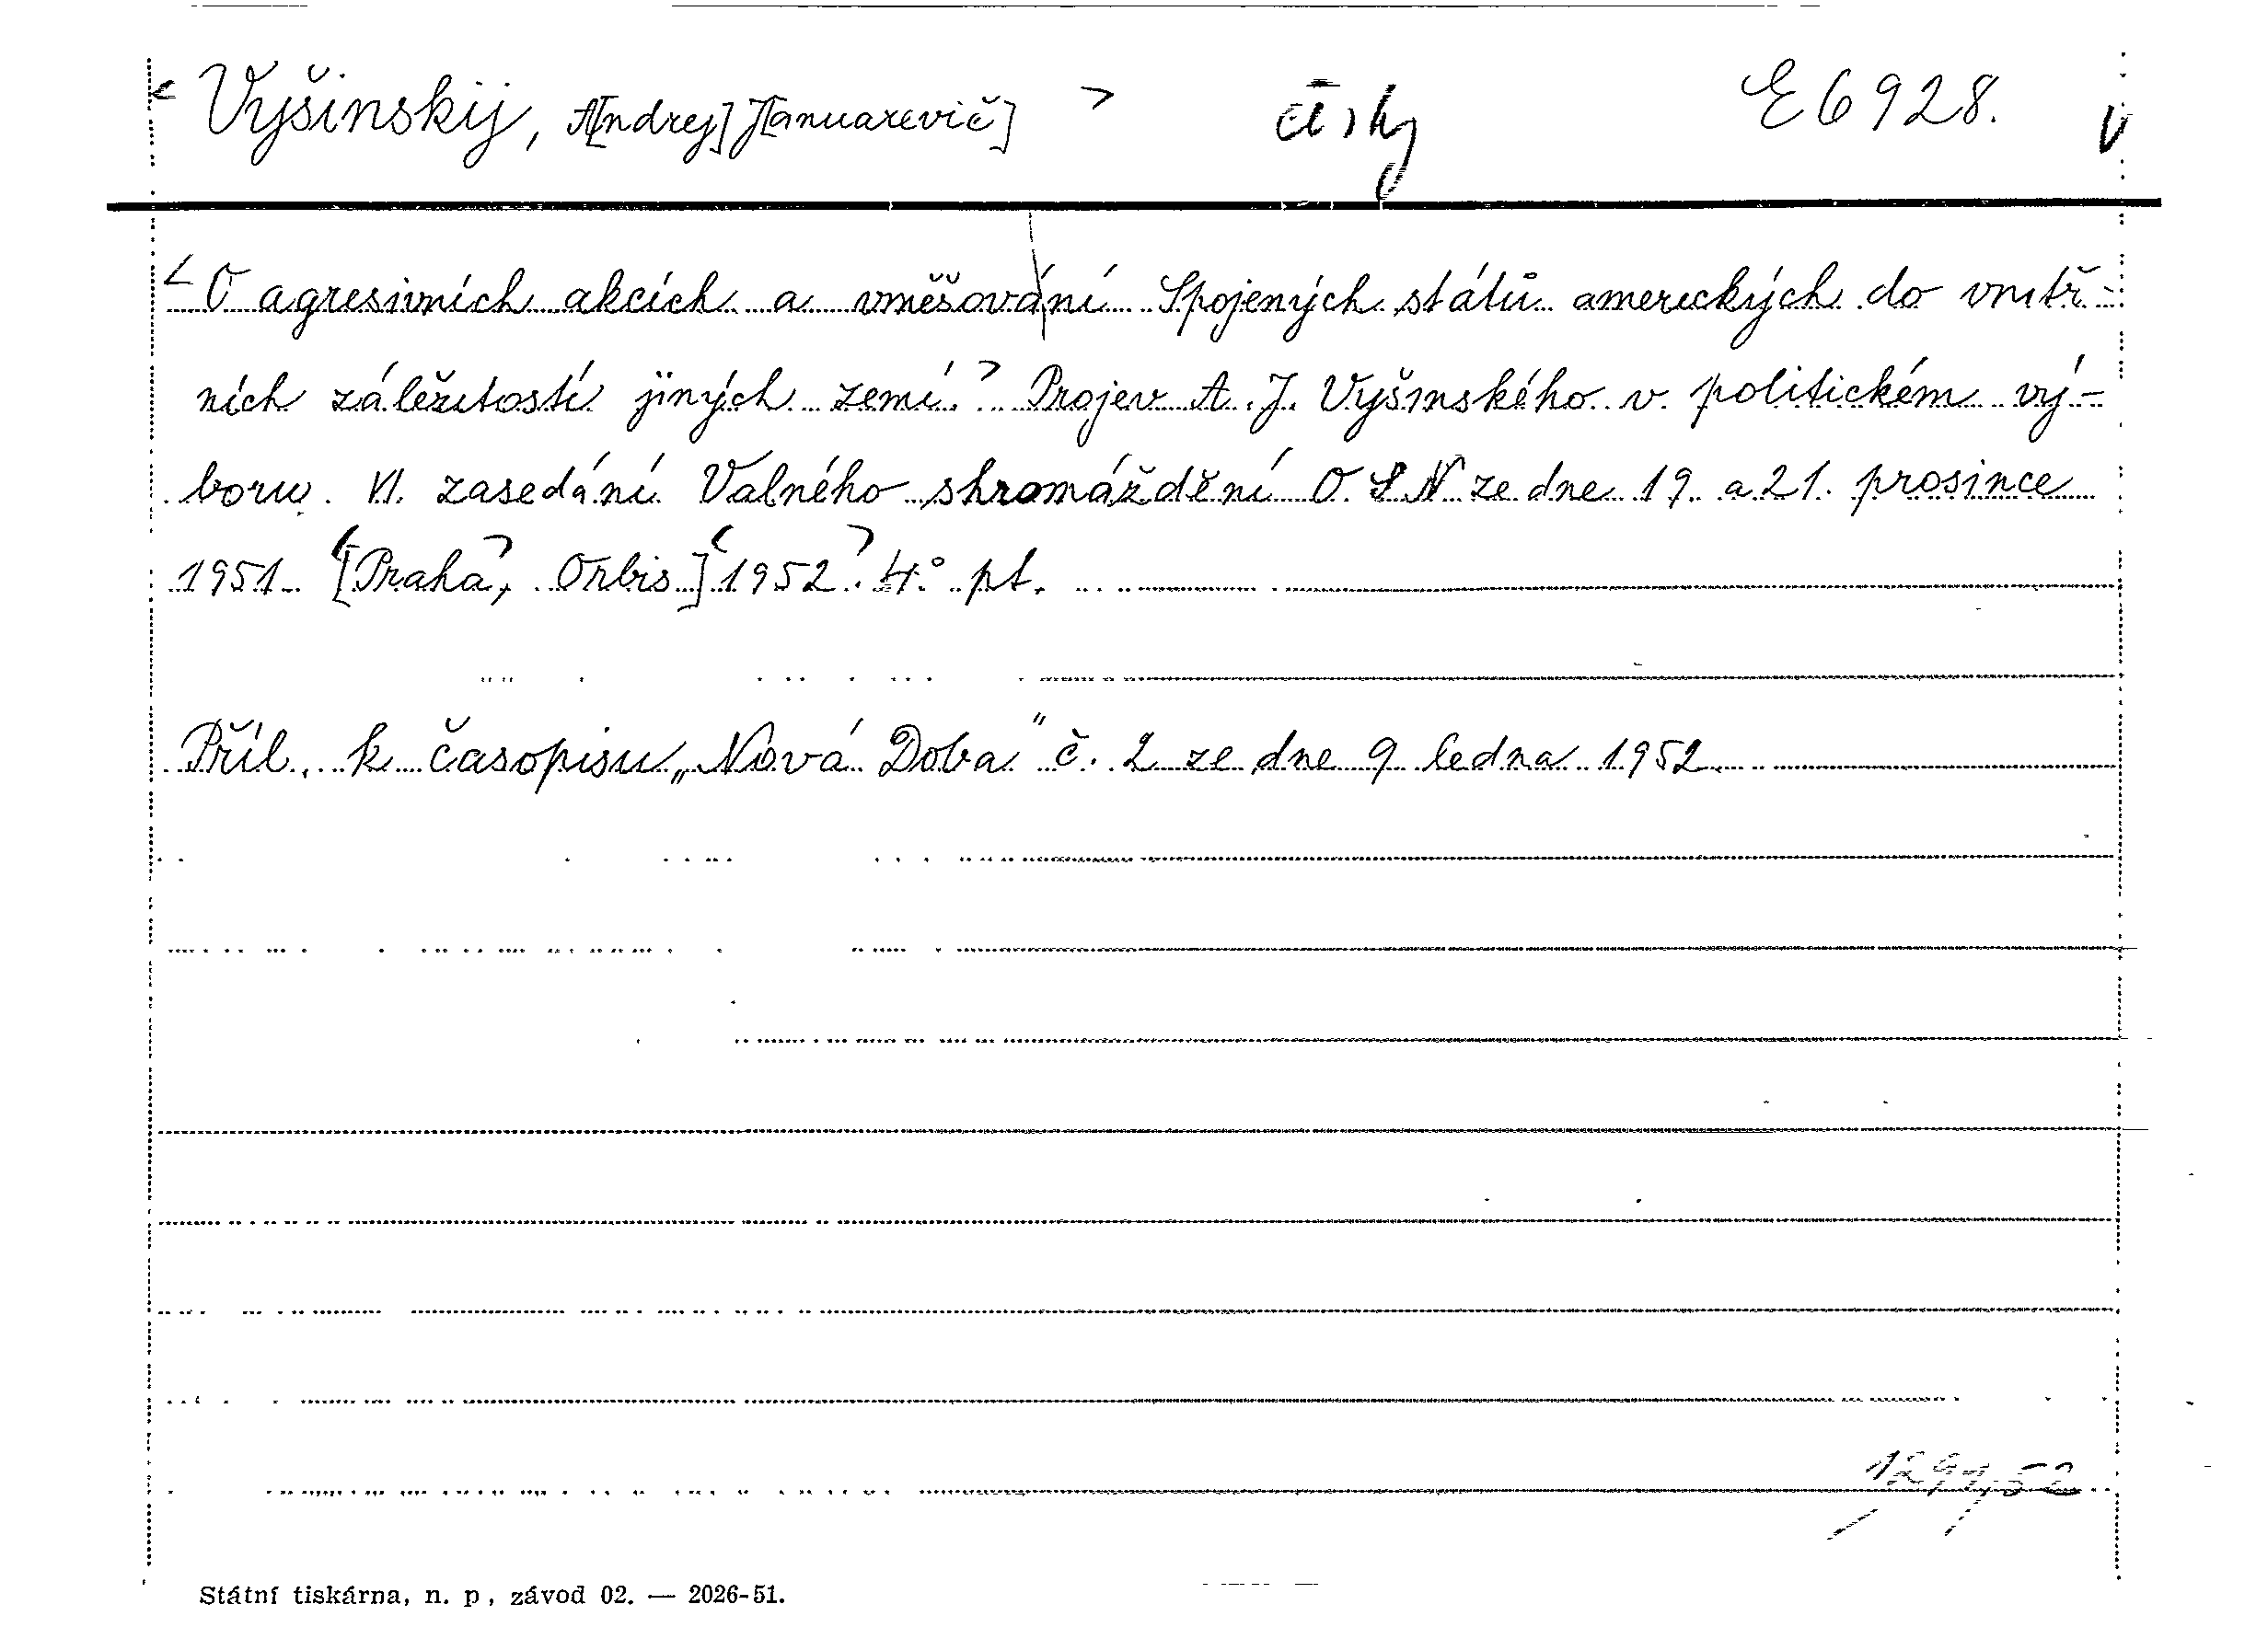 < Vyšinskij, A[ndrej] J[anuarevič] > česky E 6928. V
< O agresivních akcích a vměšování Spojených států amerických do vnitř-
ních záležitostí jiných zemí. > Projev A. J. Vyšinského v politickém vý-
boru VI. zasedání Valného shromáždění O.S.N ze dne 19. a 21. prosince
1951. [<Praha>, Orbis] <1952>. 4° pt.
Příl. k časopisu „Nová Doba" č. 2 ze dne 9 ledna 1952.
Státní tiskárna, n. p., závod 02. — 2026-51.